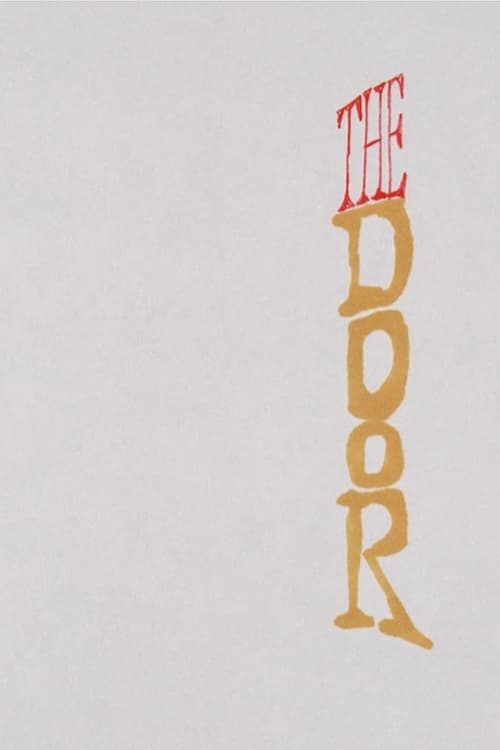 THE
DOOR